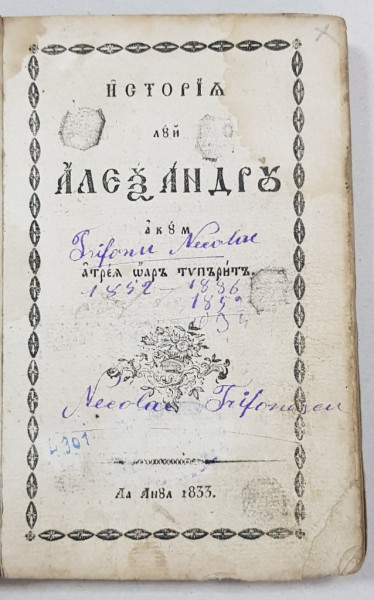 И҆СТОРІꙖ
ЛꙊЙ
А҆ЛЕѮА́НДРꙊ
А҆КꙊ́М
Trifonu Necolae
А҆ТРЕѦ ѠАРЪ ТУПЪРИ́ТЪ.
1852 — 1886
1852
Necolae Trifonescu
4301
Ла Анꙋл 1833.